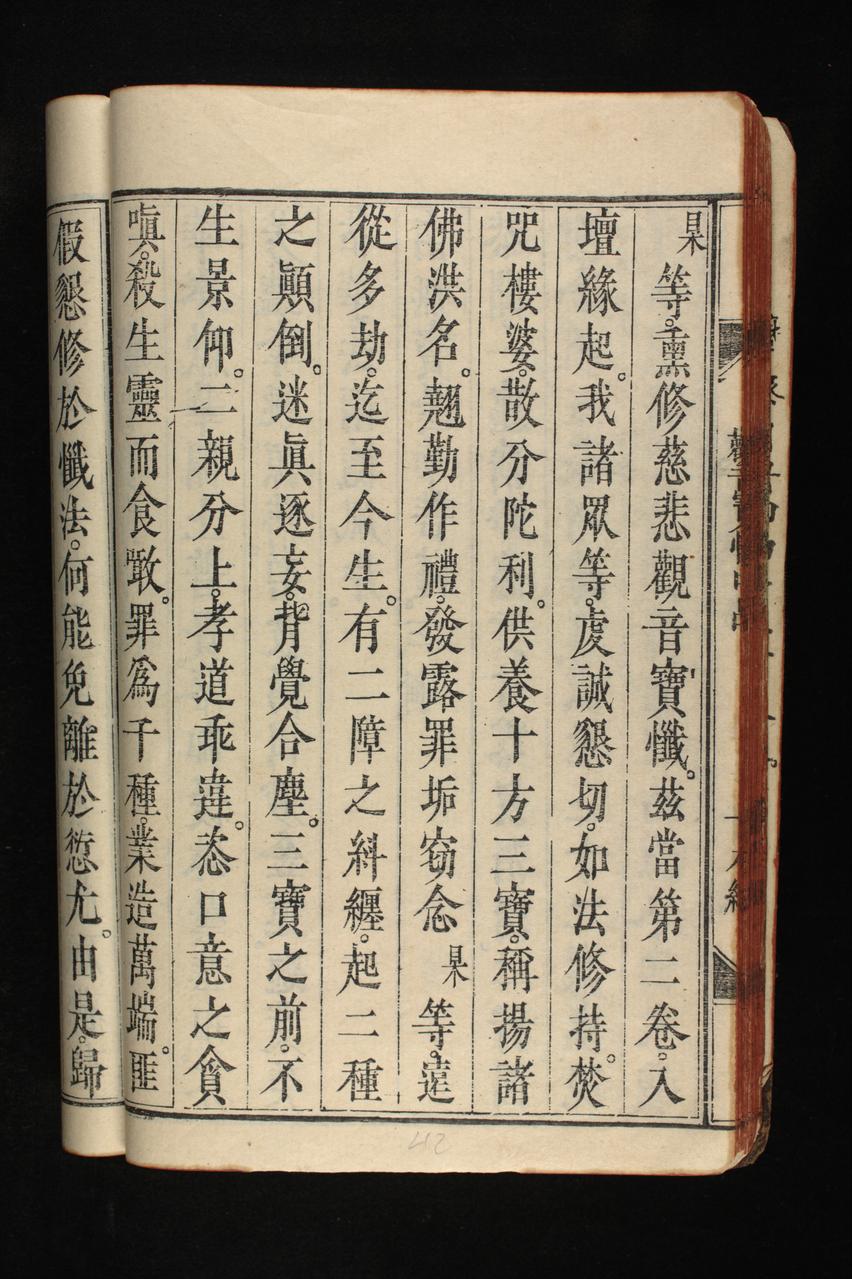 某等。熏修慈悲觀音寶懺。茲當第二卷。入
壇緣起。我諸眾等。虔誠懇切。如法修持。焚
咒樓婆。散分陀利。供養十方三寶。稱揚諸
佛洪名。翹勤作禮。發露罪垢窃念某等。遠
從多劫。迄至今生。有二障之糾纏。起二種
之顚倒。迷眞逐妄。背覺合塵。三寶之前。不
生景仰。二親分上。孝道乖違。恣口意之貪
嗔。殺生靈而食噉。罪爲千種。業造萬端。匪
假懇修於懺法。何能免離於愆尤。由是。歸
42